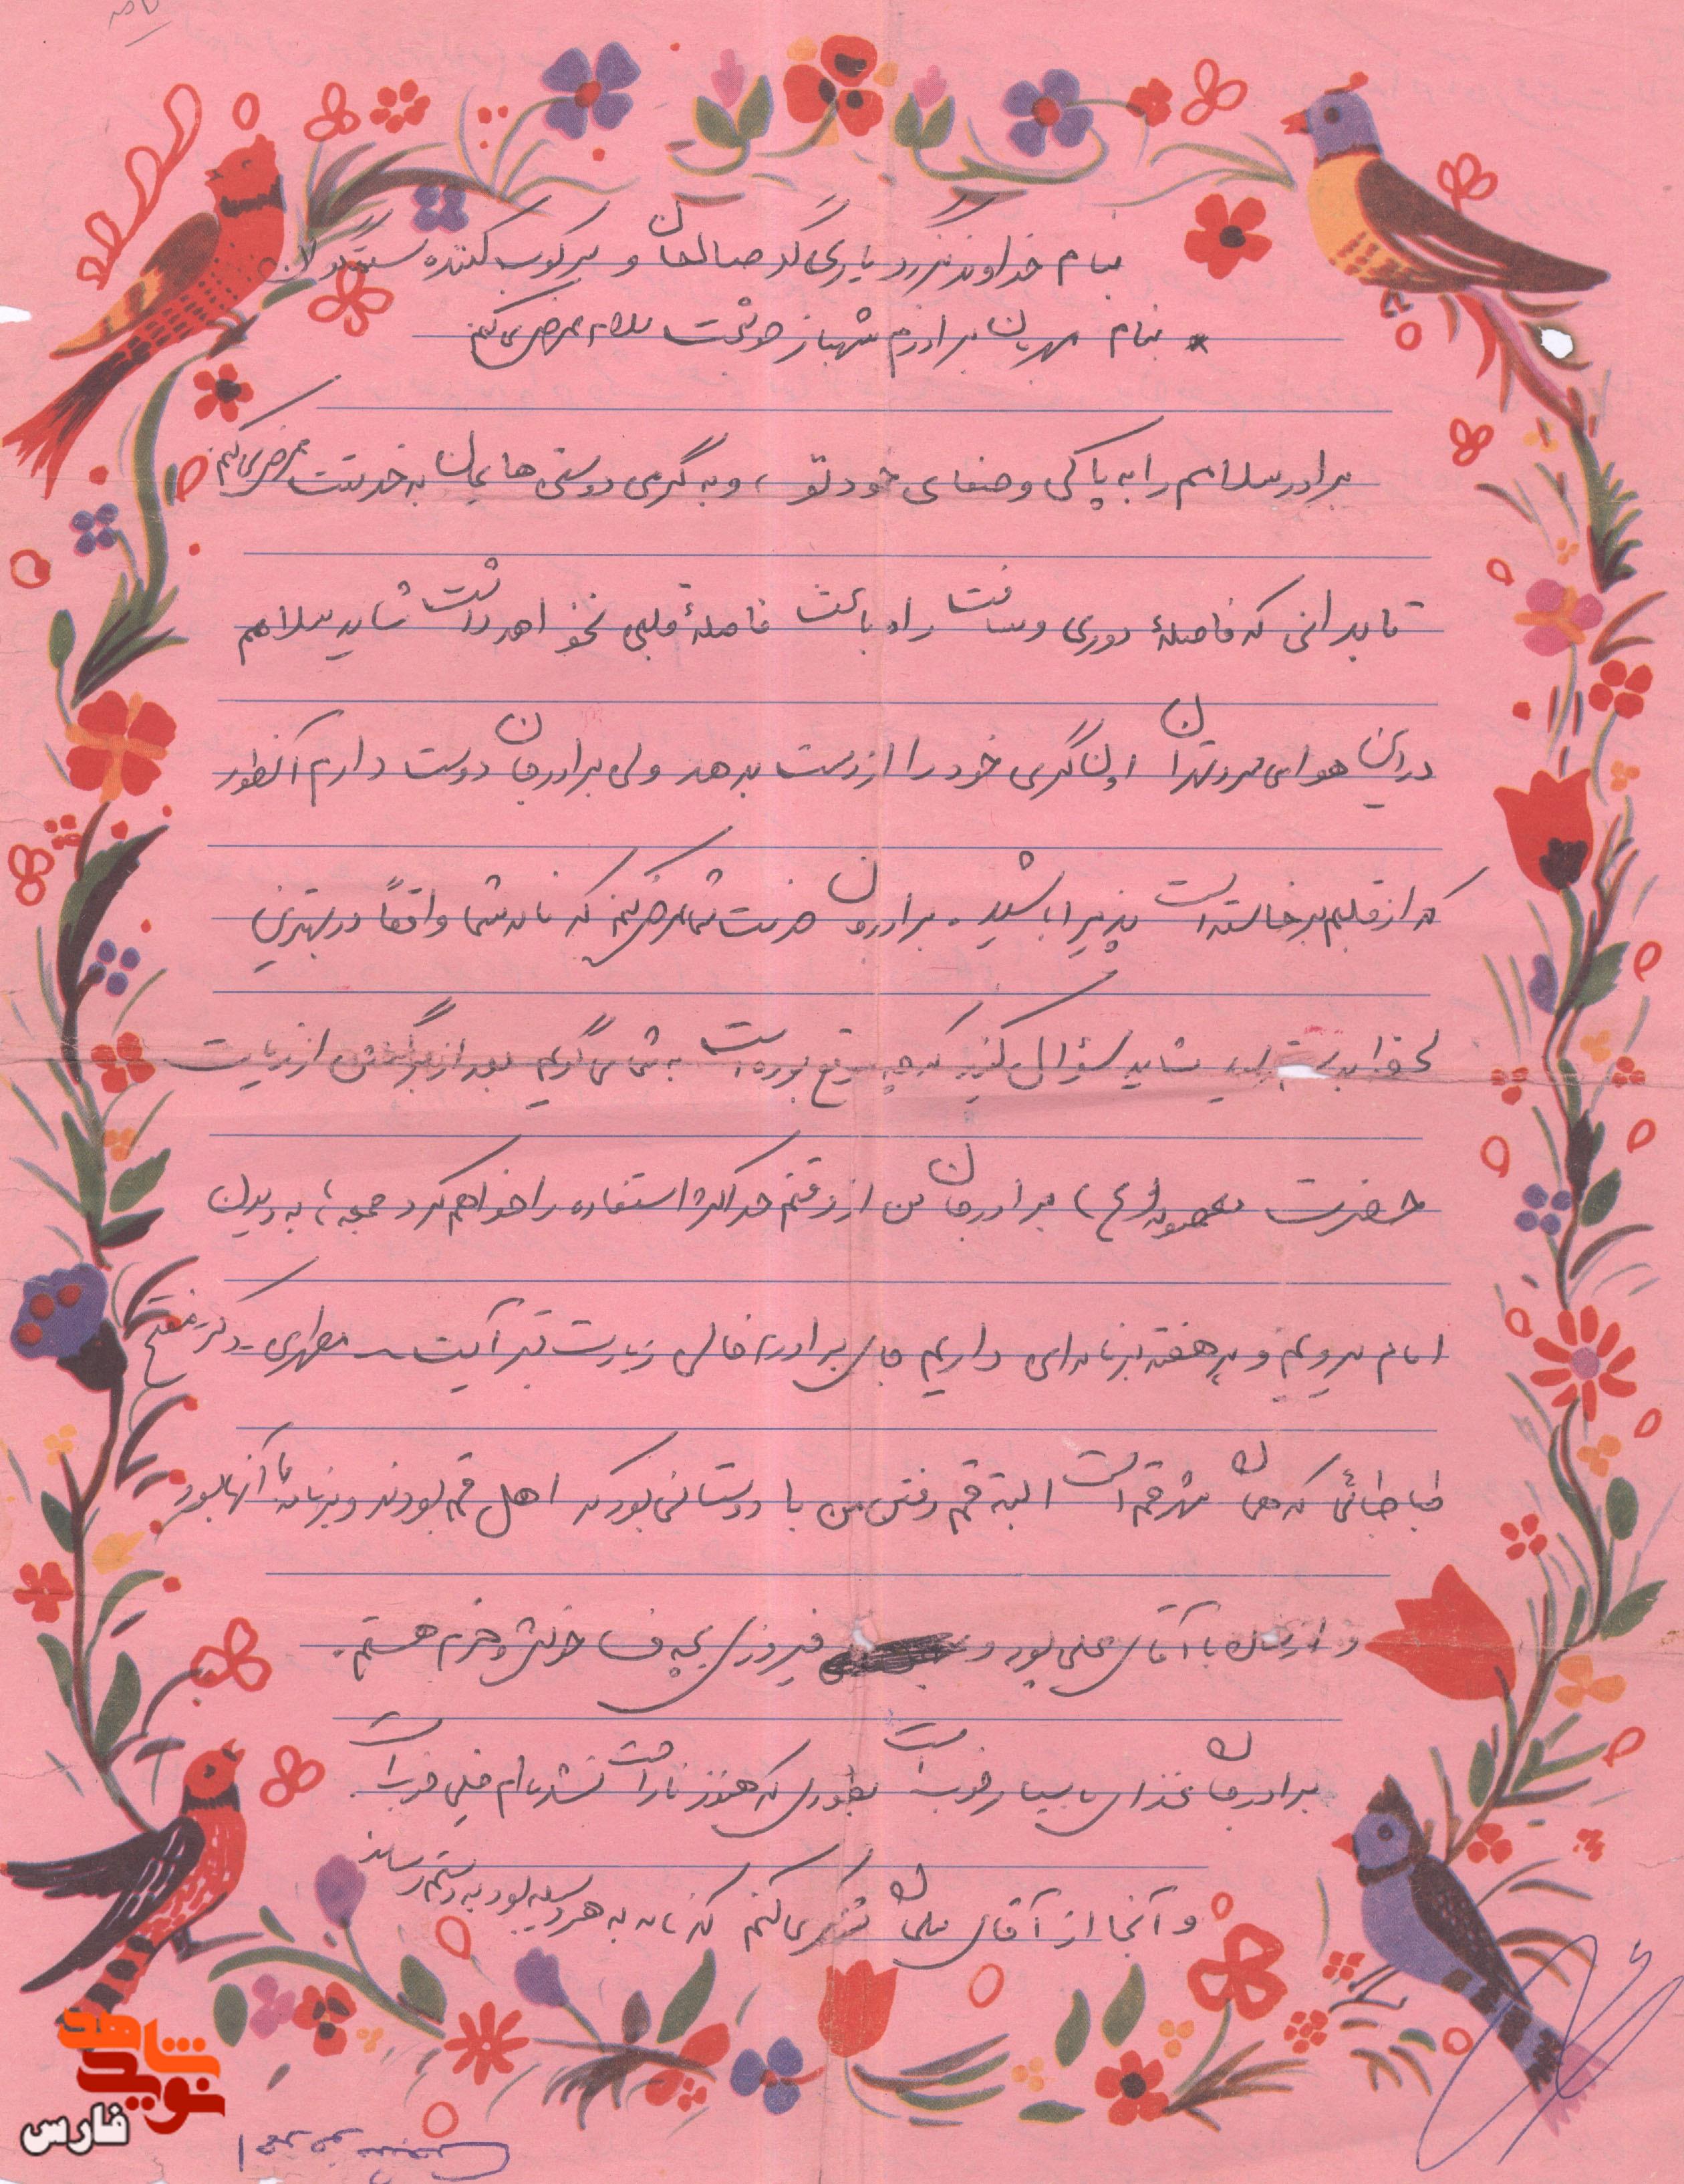 نامه
بنام خداوند بزرگ یاریگر صالحان و سرکوب کننده ستمگران
* بنام مهربان برادرم شهباز خوشبخت سلام عرض می‌کنم
برادر سلامم را به پاکی وصفای خود تو ، و به گرمی دوستی هایمان به خدمتت عرض می‌کنم
تا بدانی که فاصلهٔ دوری ومسافت راه باعث فاصلهٔ قلبی نخواهد داشت شاید سلامم
در این هوای سرد تهران اون گرمی خود را از دست بدهد ولی برادرجان دوست دارم آنطور
که از قلبم برخاسته است پذیرا باشید . برادرجان خدمت شما عرض کنم که نامه شما واقعاً در بهترین
لحظه بدستم شاید سؤال کنید که چه موقع بوده است به شما می گویم بعد از برگشتن از زیارت
حضرت معصومه (ع) برادرجان من از وقتم حداکثر استفاده را خواهم کرد جمعه ، به دیدن
امام میرویم و هر هفته برنامه‌ای داریم جای برادرا خالی زیارت قبر آیت مطهری - دکتر مفتح
طباطبائی که همان شهر قم است البته قم رفتن من با دوستانی بود که اهل قم بودند و برنامهٔ آنها بود
و با آقای بود و فیروزی بچه فسا خوش و خرم هستم .
برادرجان غذای ما بسیار خوب است بطوری که هنوز ناراحت نشده‌ام خیلی خوب است .
و آنجا از آقای تشکر می‌کنم که نامه به هر وسیله بود به دستم رساند
نوید شاهد
فارس